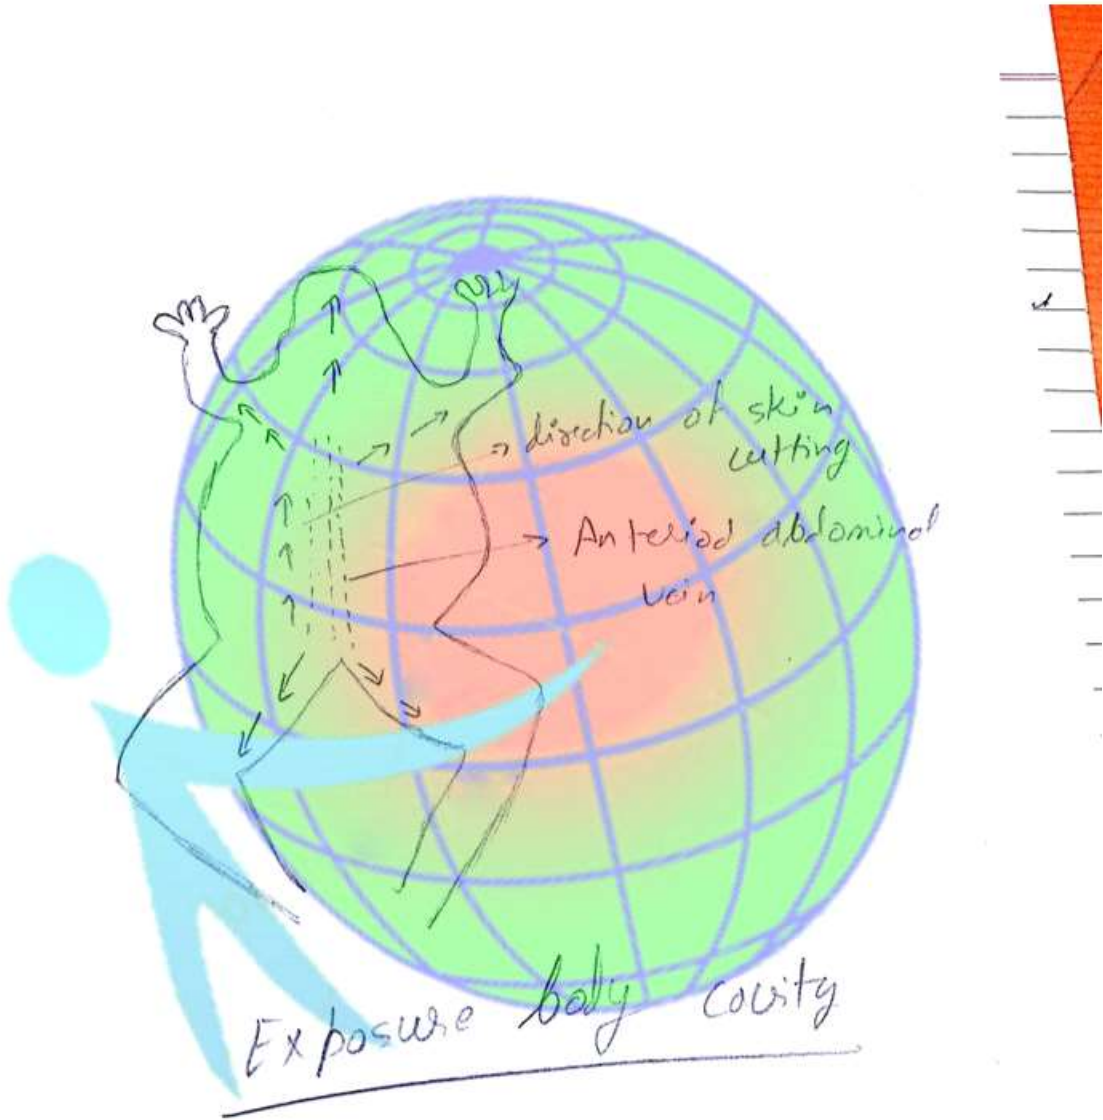 direction of skin
cutting
Anteriod abdominal
vein
Exposure body cavity